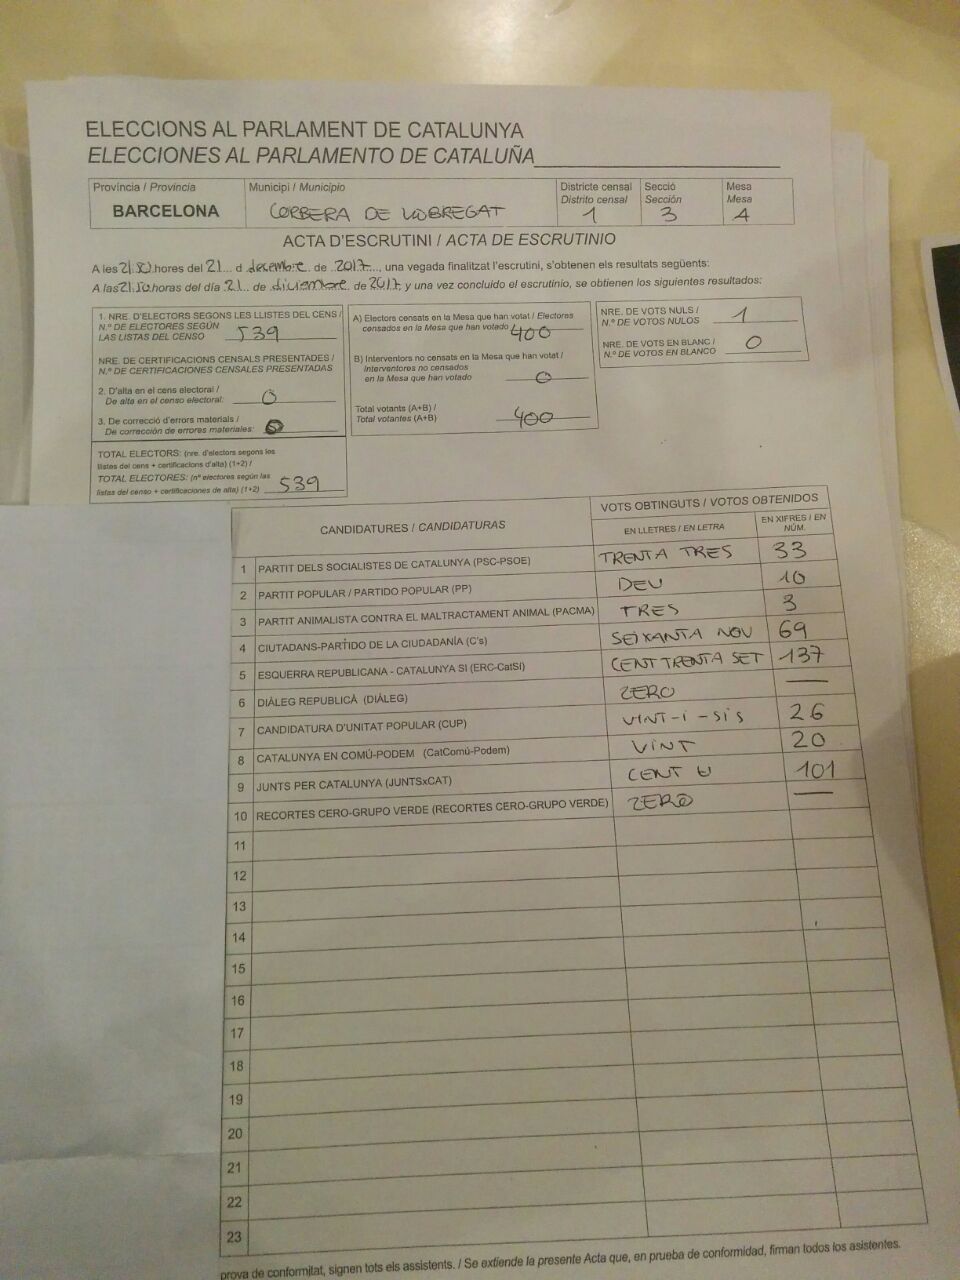 ELECCIONS AL PARLAMENT DE CATALUNYA
ELECCIONES AL PARLAMENTO DE CATALUÑA
Província / Provincia Municipi / Municipio Districte censal Secció Mesa
Distrito censal Sección Mesa
BARCELONA CORBERA DE LLOBREGAT 1 3 4
ACTA D'ESCRUTINI / ACTA DE ESCRUTINIO
A les 21.50 hores del 21 d decembre de 2017, una vegada finalitzat l'escrutini, s'obtenen els resultats següents:
A las 21.50 horas del día 21 de diciembre de 2017 y una vez concluido el escrutinio, se obtienen los siguientes resultados:
1. NRE. D'ELECTORS SEGONS LES LLISTES DEL CENS /
N.º DE ELECTORES SEGÚN
LAS LISTAS DEL CENSO 539
NRE. DE CERTIFICACIONS CENSALS PRESENTADES /
N.º DE CERTIFICACIONES CENSALES PRESENTADAS
2. D'alta en el cens electoral /
De alta en el censo electoral: 0
3. De correcció d'errors materials /
De corrección de errores materiales: 0
TOTAL ELECTORS: (nre. d'electors segons les
llistes del cens + certificacions d'alta) (1+2) /
TOTAL ELECTORES: (nº electores según las
listas del censo + certificaciones de alta) (1+2) 539
A) Electors censats en la Mesa que han votat / Electores
censados en la Mesa que han votado 400
B) Interventors no censats en la Mesa que han votat /
Interventores no censados
en la Mesa que han votado 0
Total votants (A+B) /
Total votantes (A+B) 400
NRE. DE VOTS NULS /
N.º DE VOTOS NULOS 1
NRE. DE VOTS EN BLANC /
N.º DE VOTOS EN BLANCO 0
CANDIDATURES / CANDIDATURAS VOTS OBTINGUTS / VOTOS OBTENIDOS
EN LLETRES / EN LETRA EN XIFRES / EN
NÚM.
1 PARTIT DELS SOCIALISTES DE CATALUNYA (PSC-PSOE) TRENTA TRES 33
2 PARTIT POPULAR / PARTIDO POPULAR (PP) DEU 10
3 PARTIT ANIMALISTA CONTRA EL MALTRACTAMENT ANIMAL (PACMA) TRES 3
4 CIUTADANS-PARTIDO DE LA CIUDADANÍA (C's) SEIXANTA NOU 69
5 ESQUERRA REPUBLICANA - CATALUNYA SI (ERC-CatSí) CENT TRENTA SET 137
6 DIÀLEG REPUBLICÀ (DIÀLEG) ZERO —
7 CANDIDATURA D'UNITAT POPULAR (CUP) VINT-I-SIS 26
8 CATALUNYA EN COMÚ-PODEM (CatComú-Podem) VINT 20
9 JUNTS PER CATALUNYA (JUNTSxCAT) CENT U 101
10 RECORTES CERO-GRUPO VERDE (RECORTES CERO-GRUPO VERDE) ZERO —
11
12
13
14
15
16
17
18
19
20
21
22
23
prova de conformitat, signen tots els assistents. / Se extiende la presente Acta que, en prueba de conformidad, firman todos los asistentes.